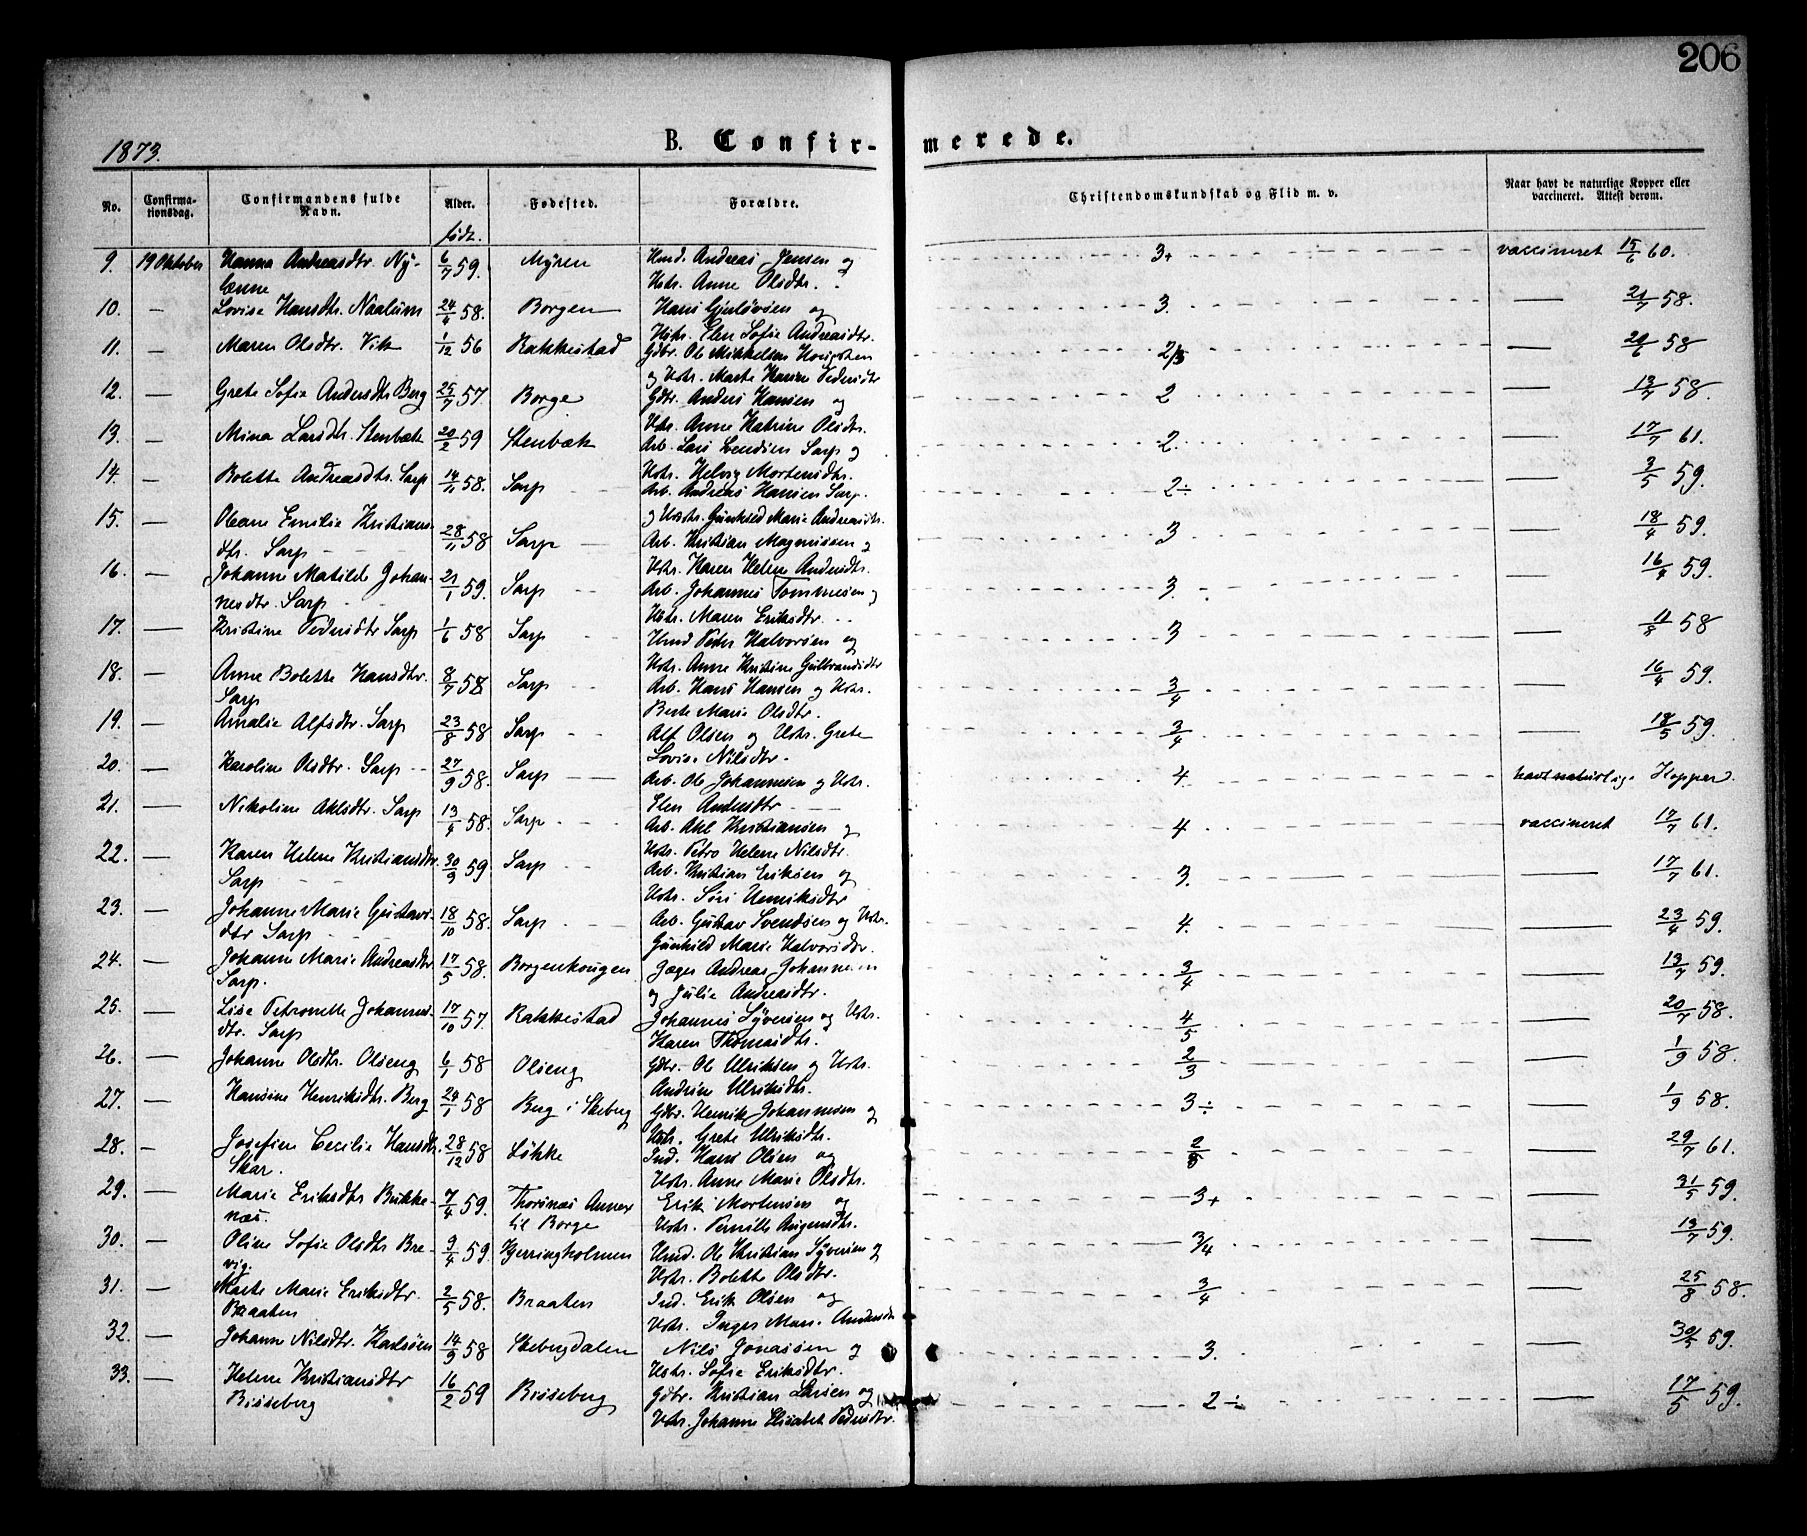 206
1873.
B. Confirmerede.
No. Confirmationsdag. Confirmandens fulde Navn. Alder. Fødested. Forældre. Christendomskundskab og Flid m. v. Naar havt de naturlige Kopper eller vaccineret. Attest derom.
født.
9. 19 Oktober Hanna Andreasdtr. Ny- 6/7 59. Myren Hmd. Andreas Jensen og 3+ vaccineret 15/6 60.
lænne Hstr. Anne Olsdtr.
10. — Lovise Hansdtr. Naalum 24/4 58. Borgen Hans Gjuløvsen og 3. — 21/7 58.
Hstr. Elen Sofie Andreasdtr.
11. — Maren Olsdtr. Vik 1/12 56 Rakkestad Gdbr. Ole Mikkelsen 2/3 — 20/6 58
og Hstr. Marte Karine Pedersdtr
12. — Grete Sofie Andersdtr Berg 25/7 57. Borge Gdbr. Anders Hansen og 2 — 13/7 58.
Hstr. Anne Katrine Olsdtr.
13. — Mina Larsdtr. Stenbæk 20/2 59 Stenbæk Arb. Lars Svendsen Sarp og 2. — 17/7 61.
Hstr. Helvig Mortensdtr.
14. — Bolette Andreasdtr. Sarp 14/11 58. Sarp Arb. Andreas Hansen Sarp. 2÷ — 3/5 59.
og Hstr. Gunhild Marie Andreasdtr.
15. — Oleane Emilie Kristians- 28/11 58 Sarp Arb. Kristian Magnussen og 3 — 18/4 59.
dtr. Sarp Hstr. Karen Helene Andersdtr.
16. — Johanne Matilde Johan- 21/1 59. Sarp Arb. Johannes Tommesen og 3. — 16/4 59.
nesdtr. Sarp Hstr. Maren Eriksdtr.
17. — Kristine Pedersdtr Sarp 1/6 58 Sarp Hmd Peter Halvorsen og 3 — 11/8 58
Hstr. Anne Kristine Gulbrandsdtr
18. — Anne Bolette Hansdtr. 8/7 58 Sarp Arb. Hans Hansen og Hstr. 3/4 — 16/4 59.
Sarp Berte Marie Olsdtr.
19. — Amalie Alfsdtr. Sarp 23/8 58 Sarp Alf Olsen og Hstr. Grete 3/4 — 18/5 59.
Lovise Nilsdtr.
20. — Karoline Olsdtr. Sarp 27/9 58. Sarp Arb. Ole Johannesen og Hstr. 4 havt naturlige Kopper.
Elen Andersdtr
21. — Nikoline Akselsdtr. Sarp 13/4 58. Sarp Arb. Aksel Kristiansen og 4 vaccineret 17/7 61.
Hstr. Petro Helene Nilsdtr.
22. — Karen Helene Kristiansdtr. 30/9 59 Sarp Arb. Kristian Eriksen og 3. — 17/7 61.
Sarp Hstr. Siri Henriksdtr
23. — Johanne Marie Gustavs- 18/10 58. Sarp Arb. Gustav Svendsen og Hstr. 4. — 23/4 59.
dtr Sarp Gunhild Marie Halvorsdtr.
24. — Johanne Marie Andreasdtr 17/5 58. Borgenhougen Jæger Andreas Johannesen 3/4 — 13/7 59.
Sarp. og Julie Andreasdtr.
25. — Lise Petronelle Johannes- 17/10 57. Rakkestad Johannes Syversen og Hstr. 4/5 — 20/7 58.
dtr. Sarp Karen Thomasdtr.
26. — Johanne Olsdtr. Olseng 6/1 58 Olseng Gdbr. Ole Ulriksen og Hstr. 2/3 — 1/9 58.
Andrine Ulriksdtr.
27. — Hansine Henriksdtr. Berg 24/1 58 Berg i Skeberg Gdbr. Henrik Johannesen og 3÷ — 1/9 58.
Hstr. Grete Ulriksdtr.
28. — Josefine Cecilie Hansdtr. 28/12 58 Løkke Ind. Hans Olsen og — 29/7 61.
Skar. Hstr. Anne Marie Olsdtr.
29. — Marie Eriksdtr Bukke- 7/4 59. Thorsnæs Annex Erik Mortensen og 3+ — 31/5 59.
næs. til Borge Hstr. Pernille
30. — Oline Sofie Olsdtr Bre- 9/4 59. Kjerringholmen Hmd. Ole Kristian Syversen og 3/4 — 13/7 59.
vig. Hstr. Bolette Olsdtr.
31. — Marte Marie Eriksdtr. 2/5 58. Braaten Ind. Erik Olsen og 3/4 — 25/8 58.
Braaten Hstr. Inger Marie Andersdtr
32. — Johanne Nilsdtr. Karlsøen 14/9 58 Skebergdalen Nils Jonassen og 3. — 30/5 59.
Hstr. Sofie Eriksdtr.
33. — Helene Kristiansdtr 16/2 59 Bisseberg Gdbr. Kristian Larsen og 2÷ — 17/5 59.
Bisseberg Hstr. Johanne Elisabet Pedersdtr.